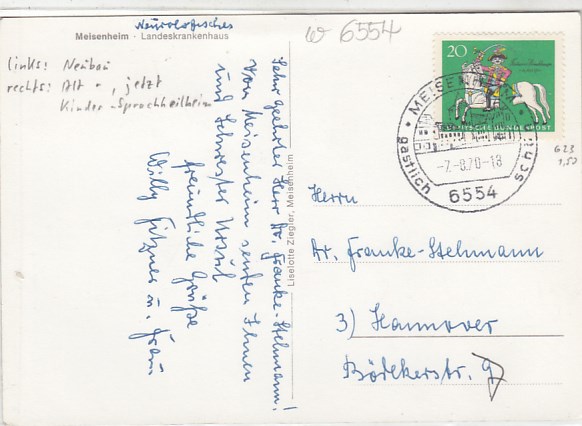 Neurologisches
Meisenheim · Landeskrankenhaus
links: Neubau
rechts: Alt - , jetzt
Kinder-Sprachheilheim
W 6554
Sehr geehrter Herr Dr. Franke-Stelmann!
Von Meisenheim senden Ihnen
und Schwester Ursul
freundliche Grüße
Willy Fitzner u. Frau
Liselotte Ziegler, Meisenheim
20
DEUTSCHE BUNDESPOST
MEISENHEIM
gastlich
-7.-8.70-18
6554
G23
1,50
Herrn
Dr. Franke-Stelmann
3) Hannover
Bödekerstr. 9